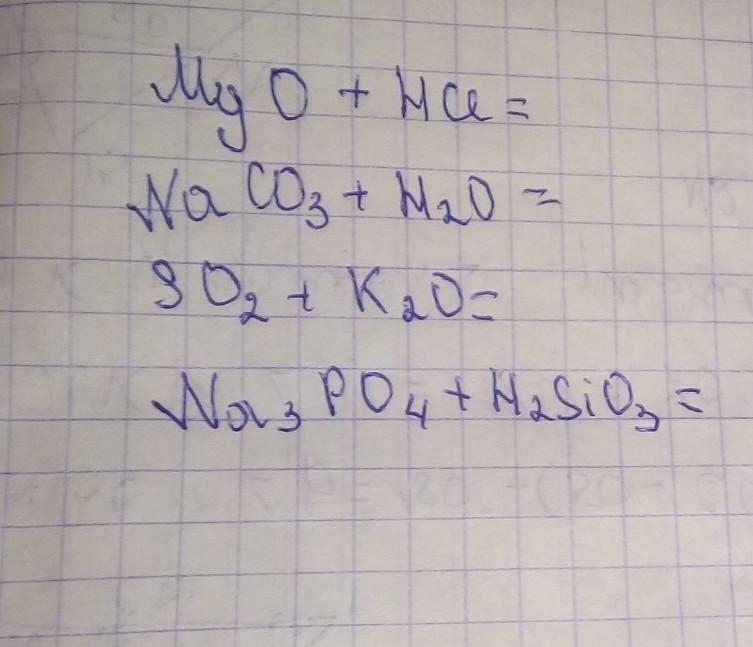 MgO + HCl =
NaCO₃ + H₂O =
SO₂ + K₂O =
Na₃PO₄ + H₂SiO₃ =